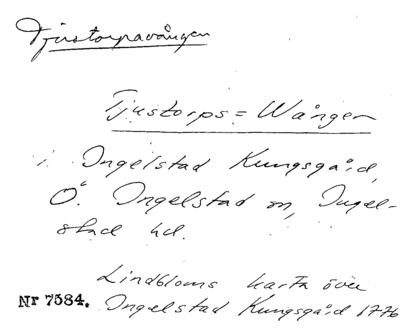 Tjustorpavången
Tjustorps=Wången
i Ingelstad Kungsgård,
Ö. Ingelstad sn, Ingel-
stad hd.
Lindbloms karta över
Nr 7584. Ingelstad Kungsgård 1776